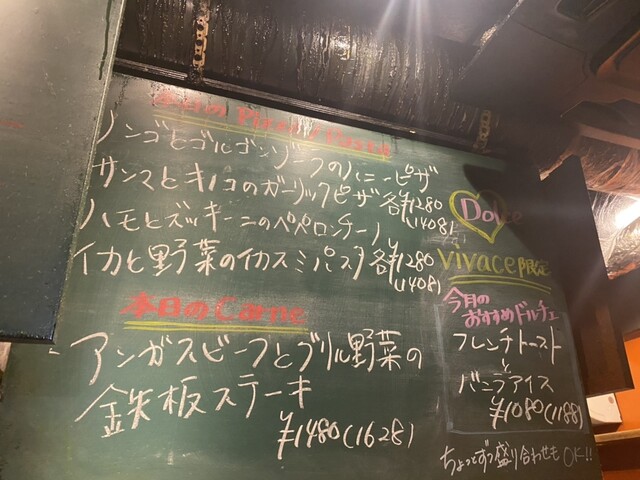 本日の Pizza / Pasta
ンゴとゴルゴンゾーラのハニーピザ
サンマとキノコのガーリックピザ 各¥1280
(1408)
ハモとズッキーニのペペロンチーノ
イカと野菜のイカスミパスタ 各¥1280
(1408)
本日のCarne
アンガスビーフとグリル野菜の
鉄板ステーキ
¥1480(1628)
Dolce
vivace限定
今月の
おすすめドルチェ
フレンチトースト
と
バニラアイス
¥1080(1188)
ちょっとずつ盛り合わせも OK!!